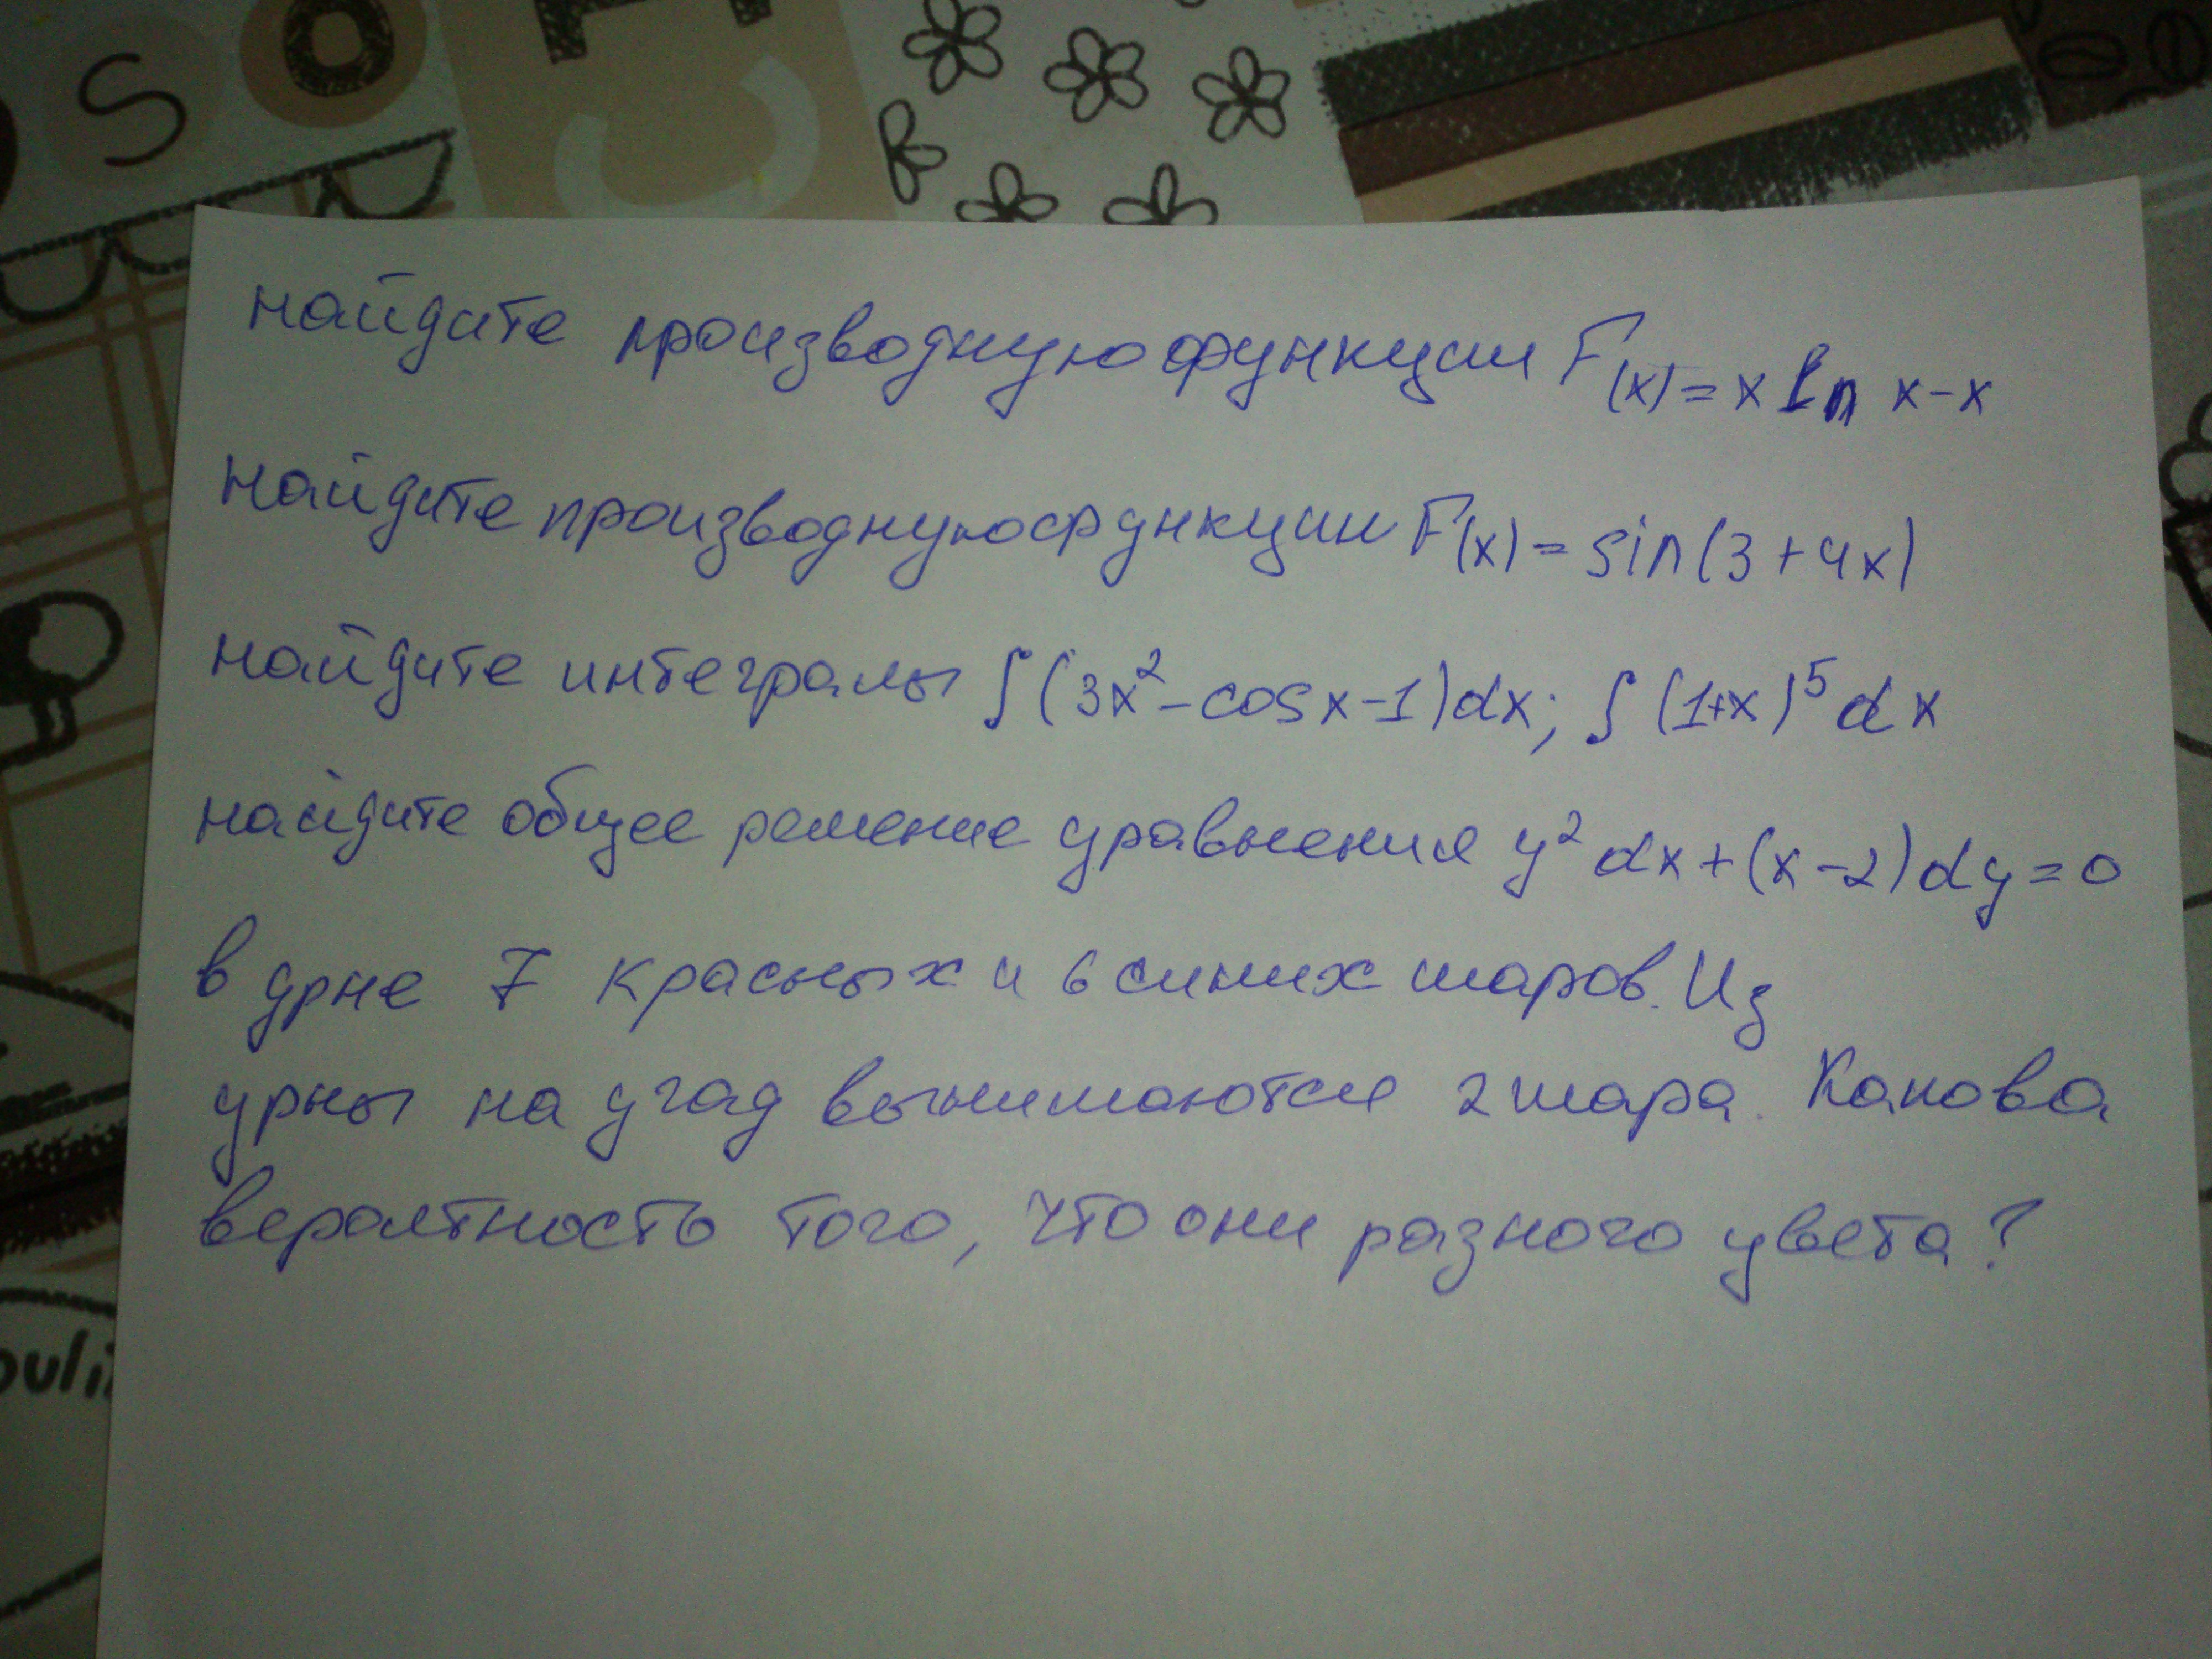 S O
найдите производную функции F(x)=x ln x-x
найдите производную функции F(x)=sin(3+4x)
найдите интегралы ∫(3x²-cosx-1)dx; ∫(1+x)⁵dx
найдите общее решение уравнения y²dx+(x-2)dy=0
в урне 7 красных и 6 синих шаров. Из
урны на угад вынимаются 2 шара. Какова
вероятность того, что они разного цвета?